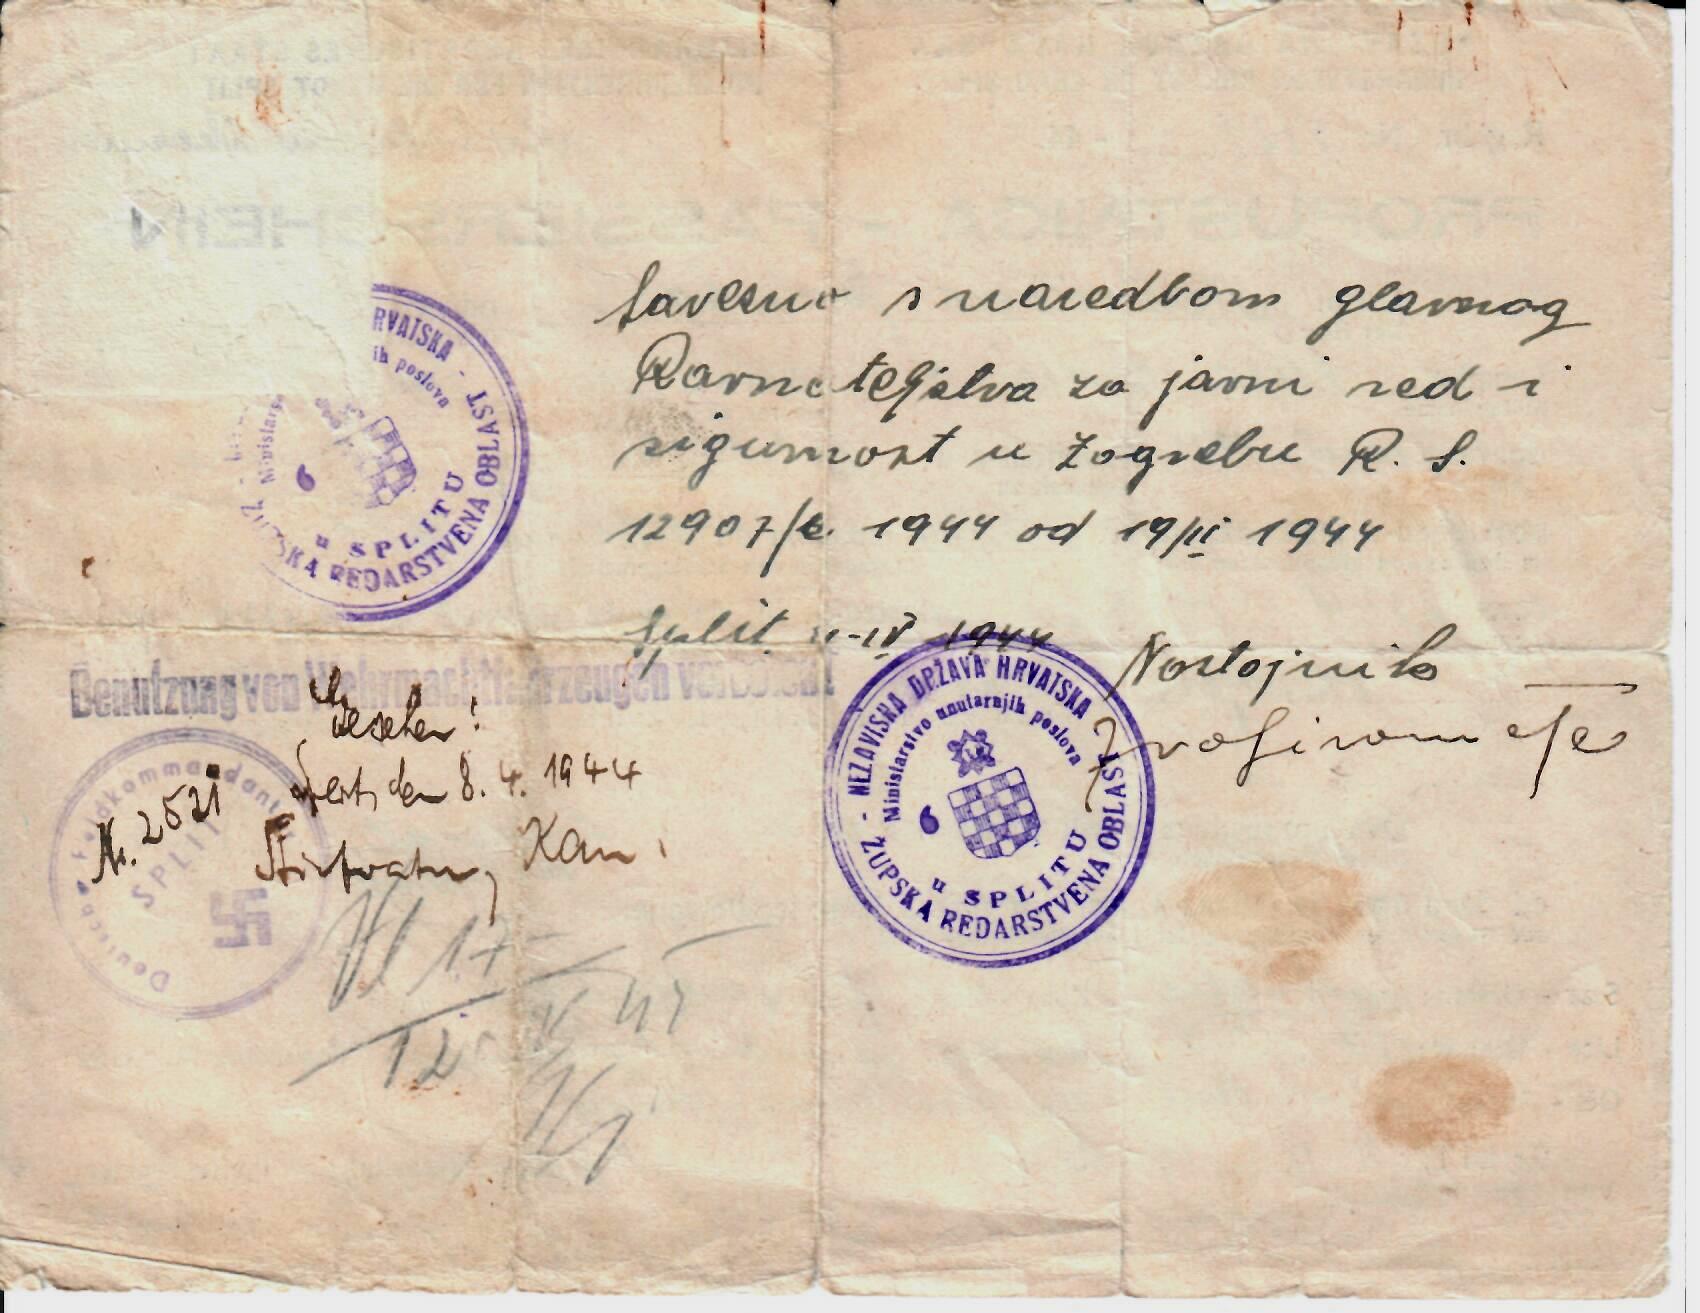 s naredbom glavnog
Ravnateljstva za javni red i
sigurnost u Zagrebu R. S.
12907/ 1944 od 19/III 1944
Split IV 1944
Nostojnik
HRVATSKA
ih poslova
Ministars
ŽUPSKA REDARSTVENA OBLAST
u SPLITU
6
Benutzung von Wehrmachtfahrzeugen verboten!
Gesehen!
Split, den 8. 4. 1944
Nr. 2521
Deutsche Feldkommandantur
SPLIT
NEZAVISNA DRŽAVA HRVATSKA
Ministarstvo unutarnjih poslova
6
u SPLITU
ŽUPSKA REDARSTVENA OBLAST
17
12